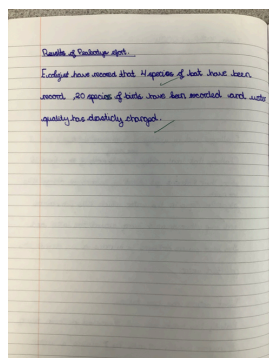 Results of Peabodys effort.
Ecologist have record that 4 species of bat have been
record, 20 species of birds have been recorded and water
quality has drasticly changed.